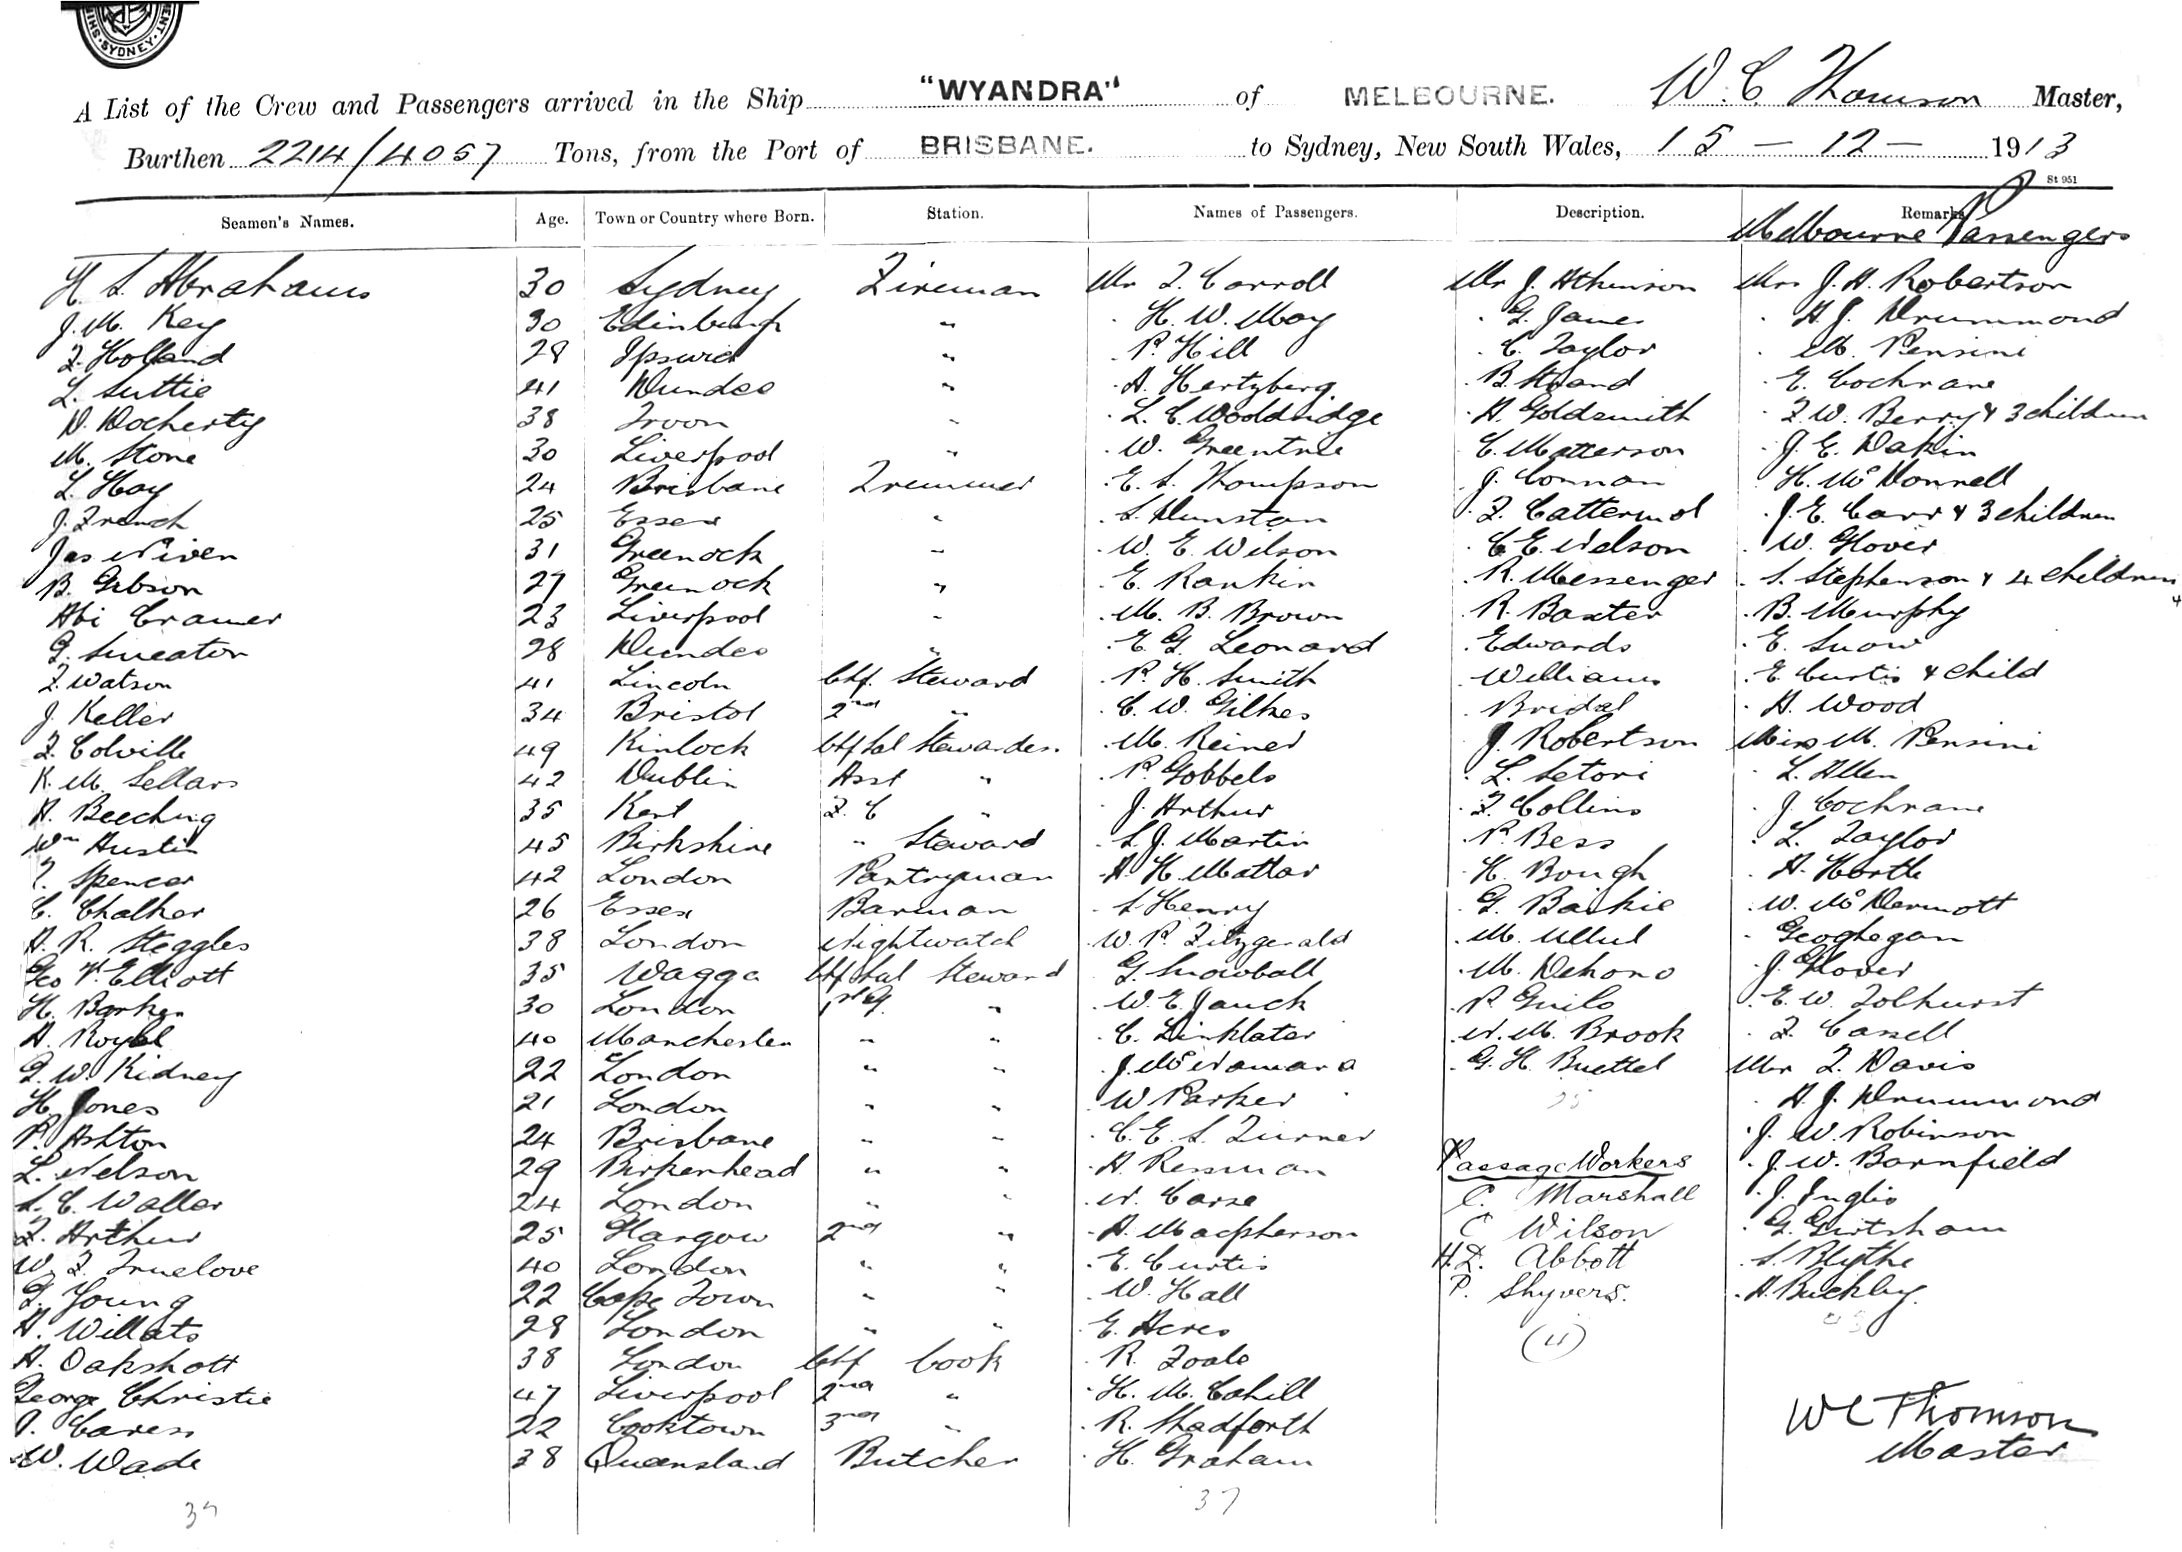 SYDNEY
A List of the Crew and Passengers arrived in the Ship "WYANDRA" of MELBOURNE. W. C. Thomson Master,
Burthen 2214/4057 Tons, from the Port of BRISBANE. to Sydney, New South Wales, 15 - 12 - 1913
St 951
Seamen's Names. Age. Town or Country where Born. Station. Names of Passengers. Description. Remarks
Melbourne Passengers
H. S. Abrahams 30 Sydney Fireman Mr F. Carroll Mr J. Atkinson Mrs J. A. Robertson
J. M. Key 30 Edinburgh " · H. W. May · G. James · A. J. Drummond
F. Holland 28 Ipswich " · P. Hill · C. Taylor · M. Pensini
L. Suttie 41 Dundee " · A. Hertzberg · B. Strand · E. Cochrane
D. Docherty 38 Troon " · L. C. Wooldridge · A. Goldsmith · F. W. Berry & 3 children
M. Stone 30 Liverpool " · W. Greentree · C. Matterson · J. E. Dakin
L. Hay 24 Brisbane Trimmer · E. S. Thompson · J. Connan · H. McDonnell
J. French 25 Essex " · S. Dunstan · F. Cattermol · J. E. Carr & 3 children
Jas Niven 31 Greenock " · W. E. Wilson · C. E. Nelson · W. Glover
B. Gibson 27 Greenock " · E. Rankin · R. Messenger · S. Stephenson & 4 children
Abi Cramer 23 Liverpool " · M. B. Brown · R. Baxter · B. Murphy
G. Smeaton 28 Dundee " · E. G. Leonard · Edwards · E. Snow
F. Watson 41 Lincoln Chf. Steward · P. H. Smith · Williams · E. Curtis & child
J. Keller 34 Bristol 2nd " · C. W. Gilkes · Bridal · A. Wood
F. Colville 49 Kinlock Chf Sal Stewardess · M. Reiner · J. Robertson Miss M. Pensini
K. M. Sellars 42 Dublin Asst " · P. Gobbels · L. Setori · L. Allen
A. Beeching 35 Kent F. C " · J. Arthur · F. Collins · J. Cochrane
Wm Austin 45 Birkshire " Steward · S. J. Martin · P. Bess · L. Taylor
T. Spencer 42 London Pantryman · A. H. Mattar · H. Bough · A. Horth
C. Chalker 26 Essex Barman · S. Henry · G. Baikie · W. McDermott
A. R. Steggles 38 London Nightwatch · W. P. Fitzgerald · M. · Geoghegan
Geo V. Elliott 35 Wagga Chf Sal Steward · G. Snowball · M. Dehono · J. Glover
H. Barker 30 London 1st G. " · W. E. Jauck · P. Guilo · E. W. Tolhurst
A. Royal 40 Manchester " " · C. Linklater · N. M. Brook · F. Cassell
G. W. Kidney 22 London " " · J. McNamara · G. H. Buettel Mr F. Davis
H. Jones 21 London " " · W Parker 25 · A. J. Drummond
P. Ashton 24 Brisbane " " · C. E. S. Turner · J. W. Robinson
L. Nelson 29 Birkenhead " " · A. Rensman Passage Workers · J. W. Barnfield
S. C. Waller 24 London " " · N. Carse C. Marshall · J. Inglis
F. Arthur 25 Glasgow 2nd " · A. Macpherson C Wilson · G. Gutsham
W. F. Truelove 40 London " " · E. Curtis H.D. Abbott · S. Blythe
G. Young 22 Cape Town " " · W. Hall P. Shyvers. · A. Buckley.
A. Willats 28 London " " · E. Acres (4)
A. Oakshott 38 London Chf Cook · R. Toale
George Christie 47 Liverpool 2nd " · H. M. Cahill
Caress 22 Cooktown 3rd " · R. Shadforth
W. Wade 38 Queensland Butcher · H. Graham
WC Thomson
Master
37 37